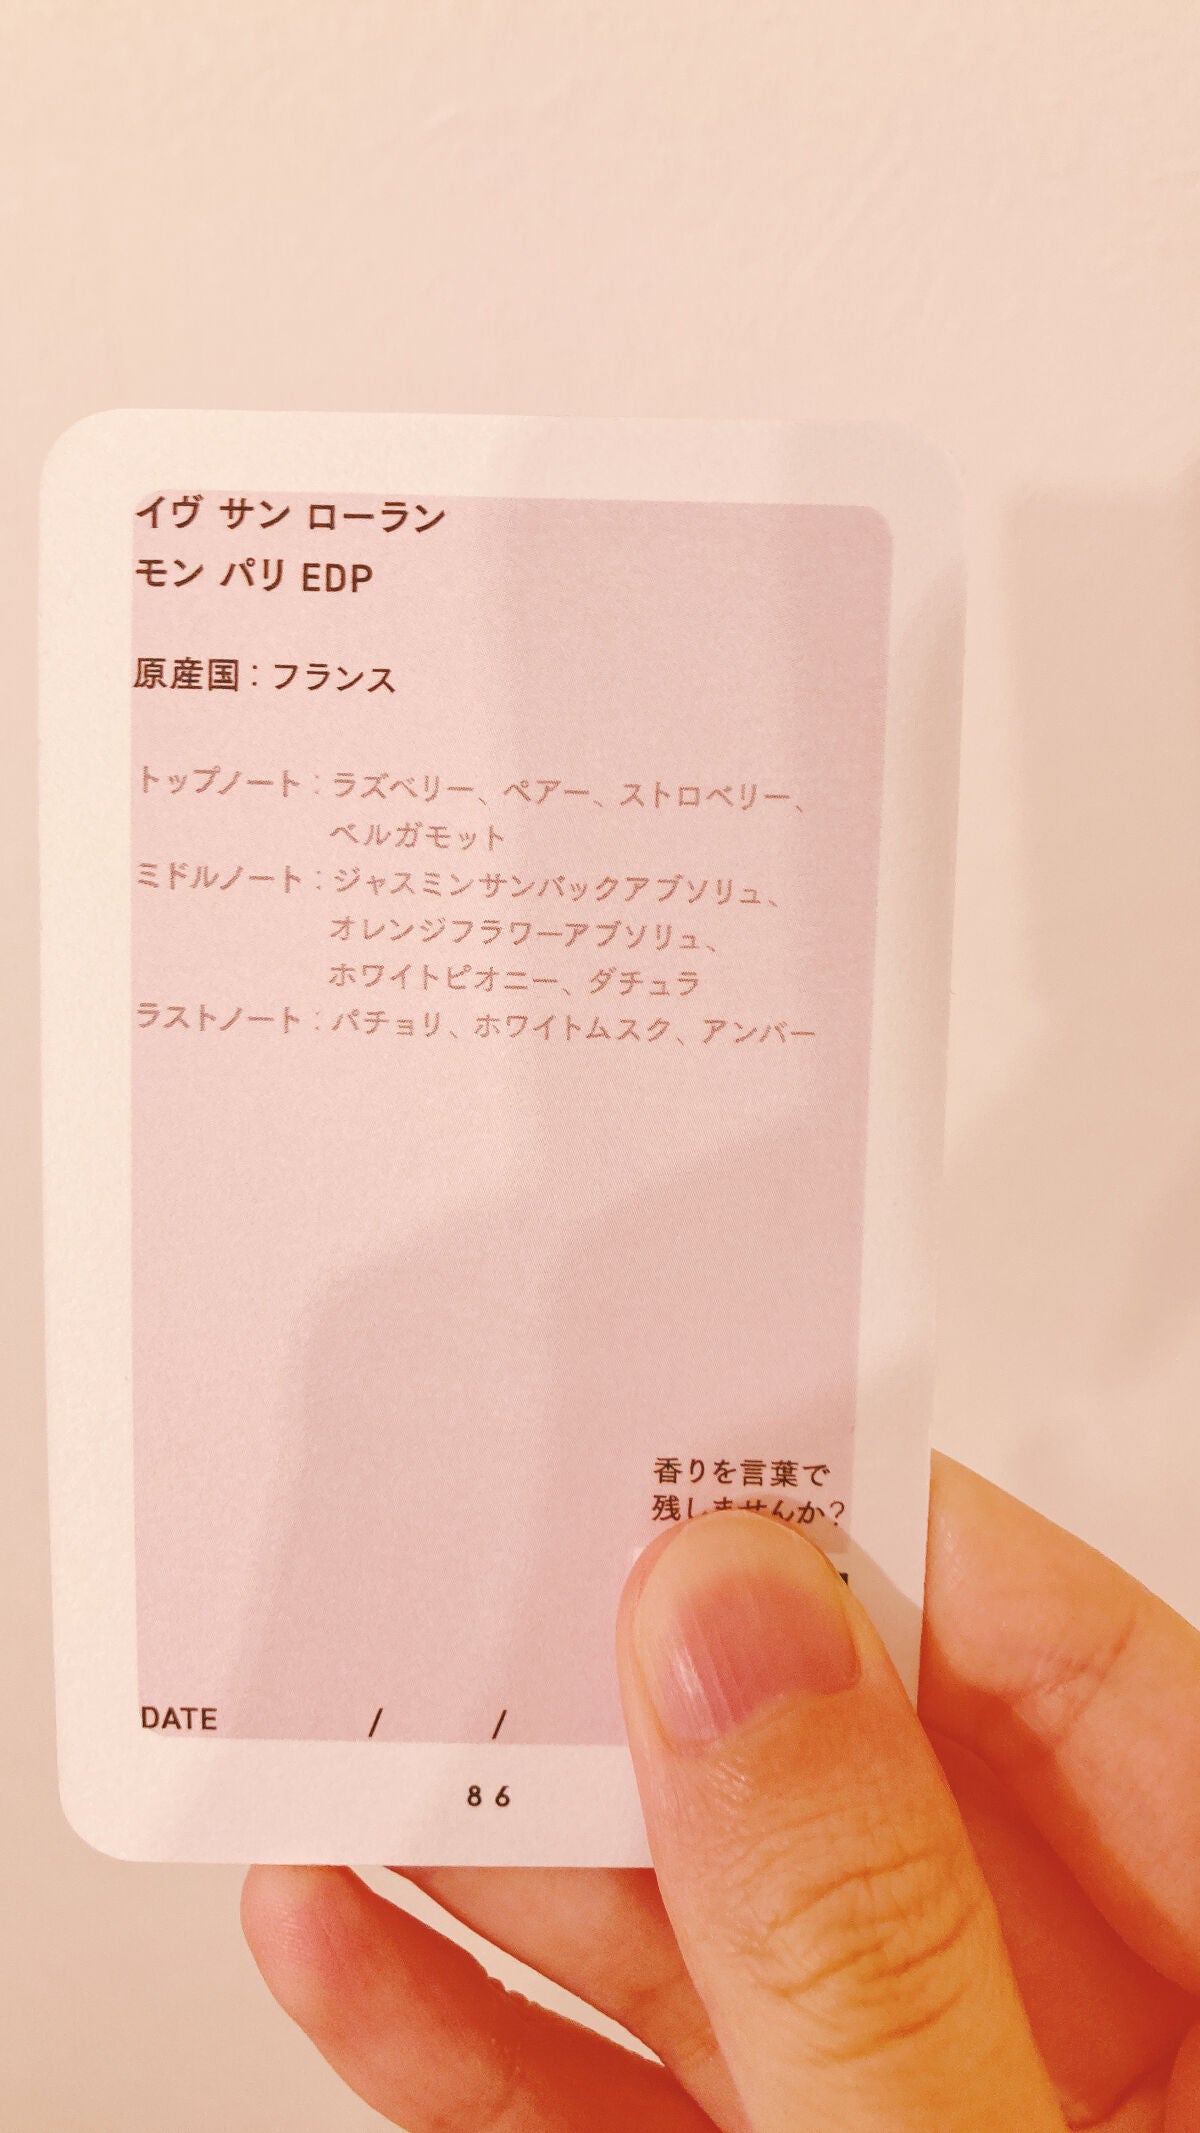 イヴ サン ローラン
モン パリ EDP
原産国：フランス
トップノート：ラズベリー、ペアー、ストロベリー、
ベルガモット
ミドルノート：ジャスミンサンバックアブソリュ、
オレンジフラワーアブソリュ、
ホワイトピオニー、ダチュラ
ラストノート：パチョリ、ホワイトムスク、アンバー
香りを言葉で
残しませんか？
DATE / /
86